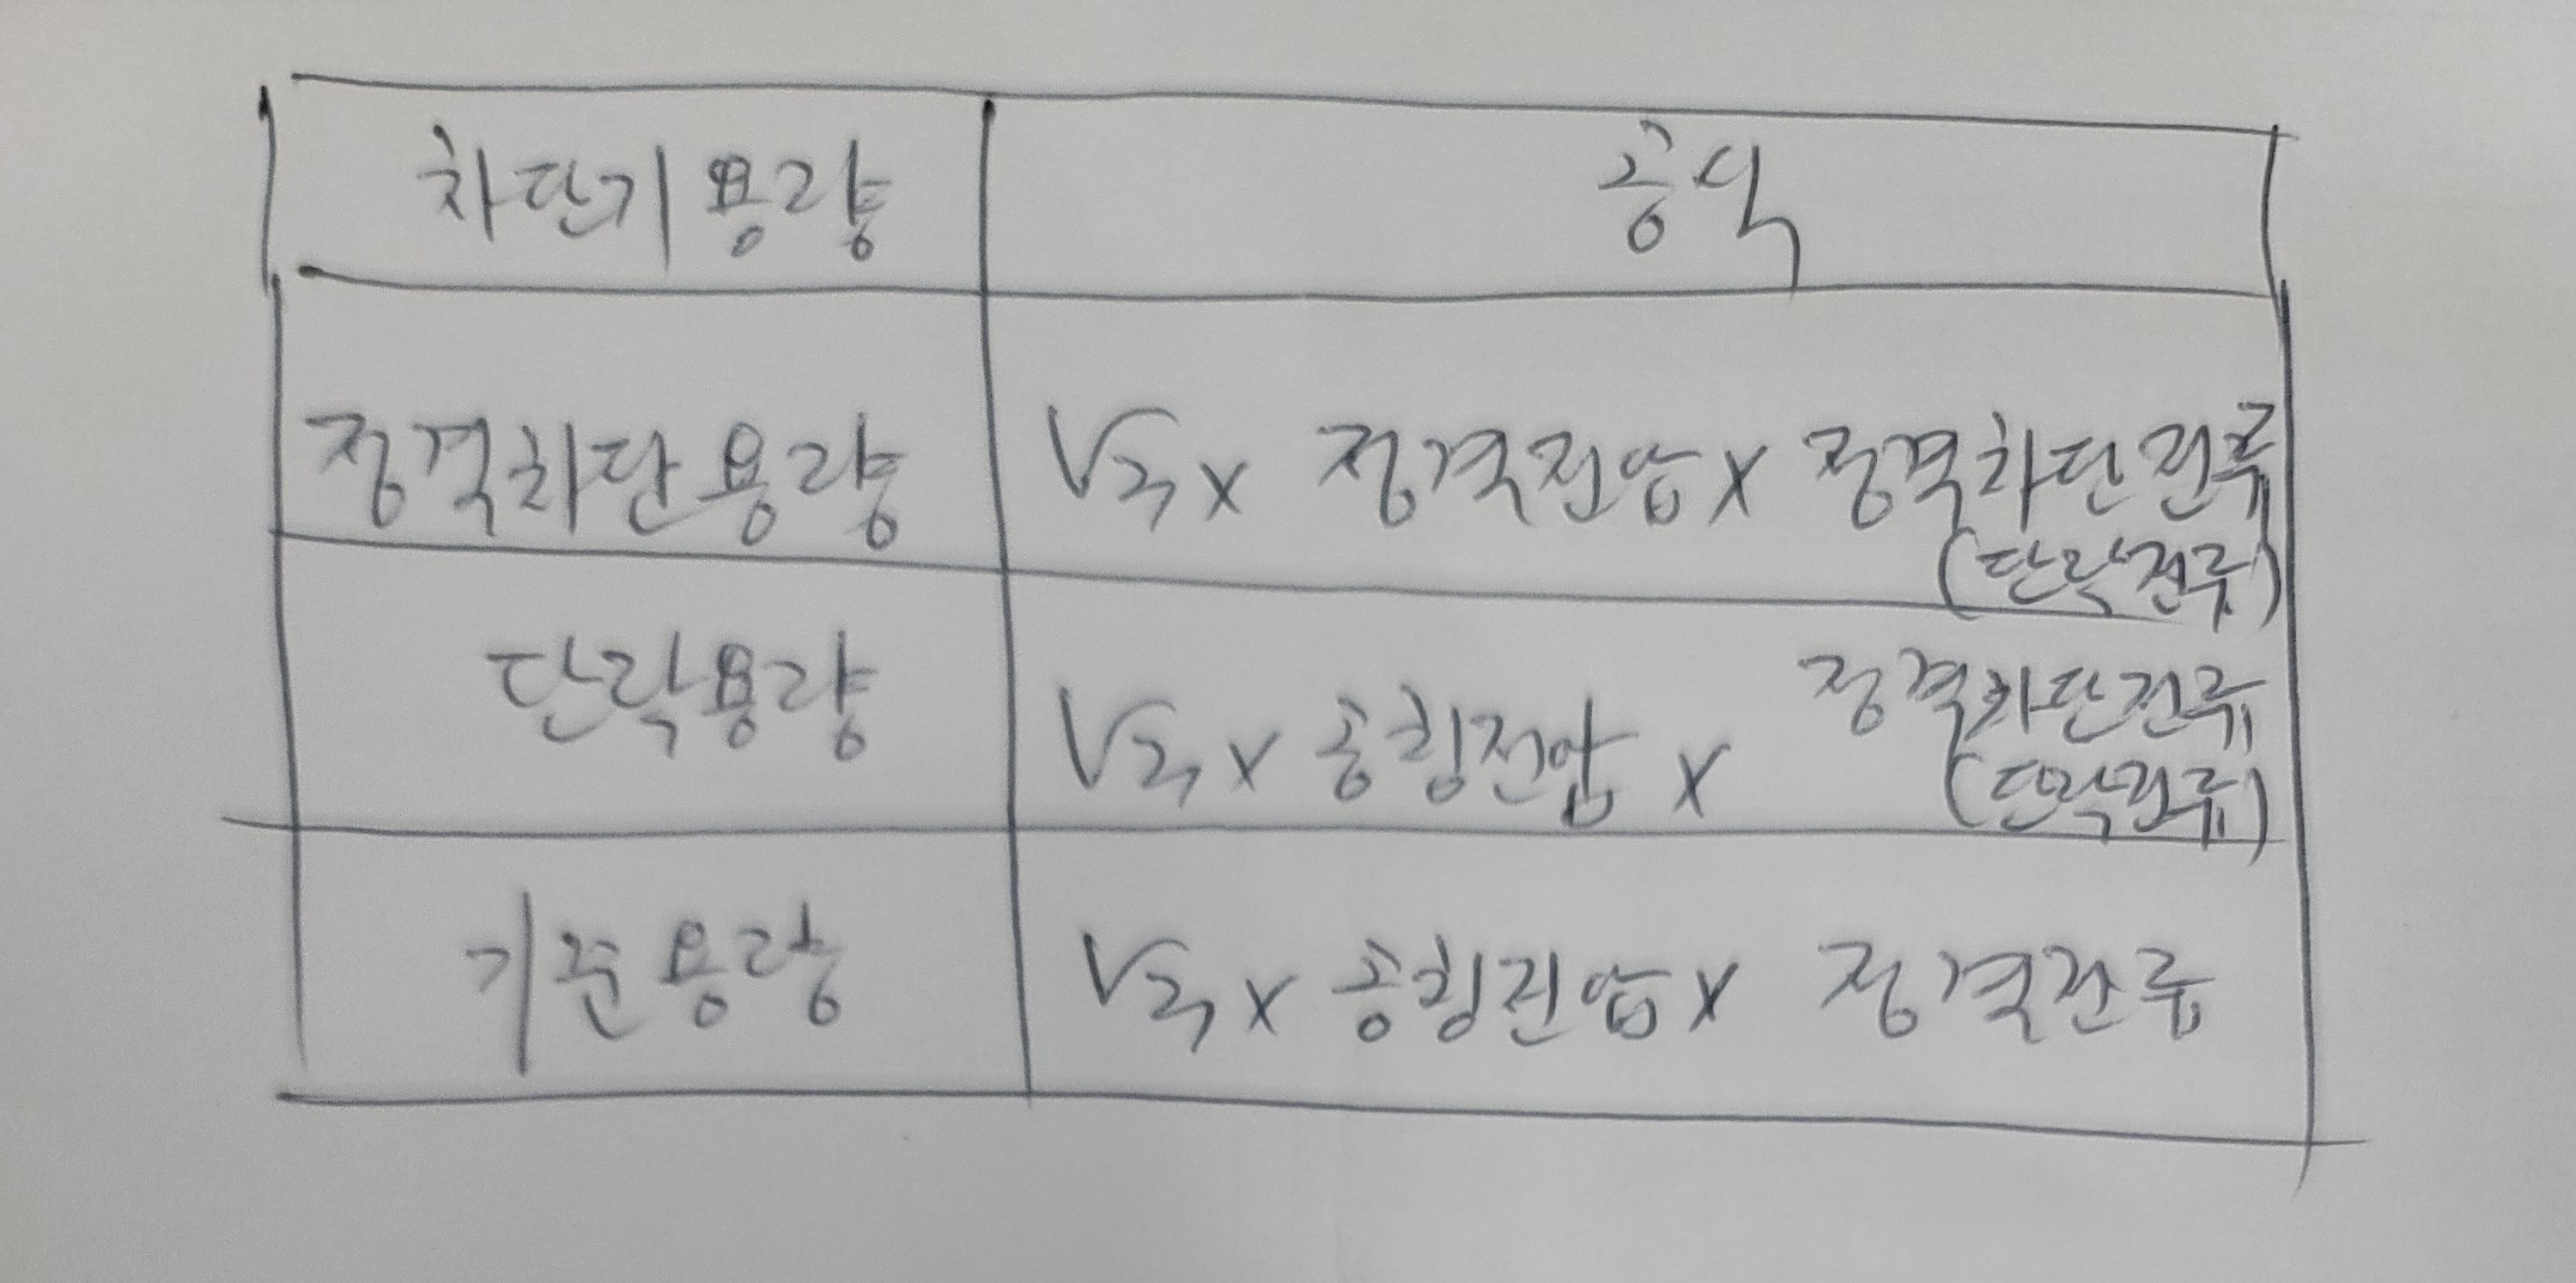 차단기 용량 공식
정격차단용량 √3 x 정격전압 x 정격차단전류
(단락전류)
단락용량 √3 x 공칭전압 x 정격차단전류
(단락전류)
기준용량 √3 x 공칭전압 x 정격전류